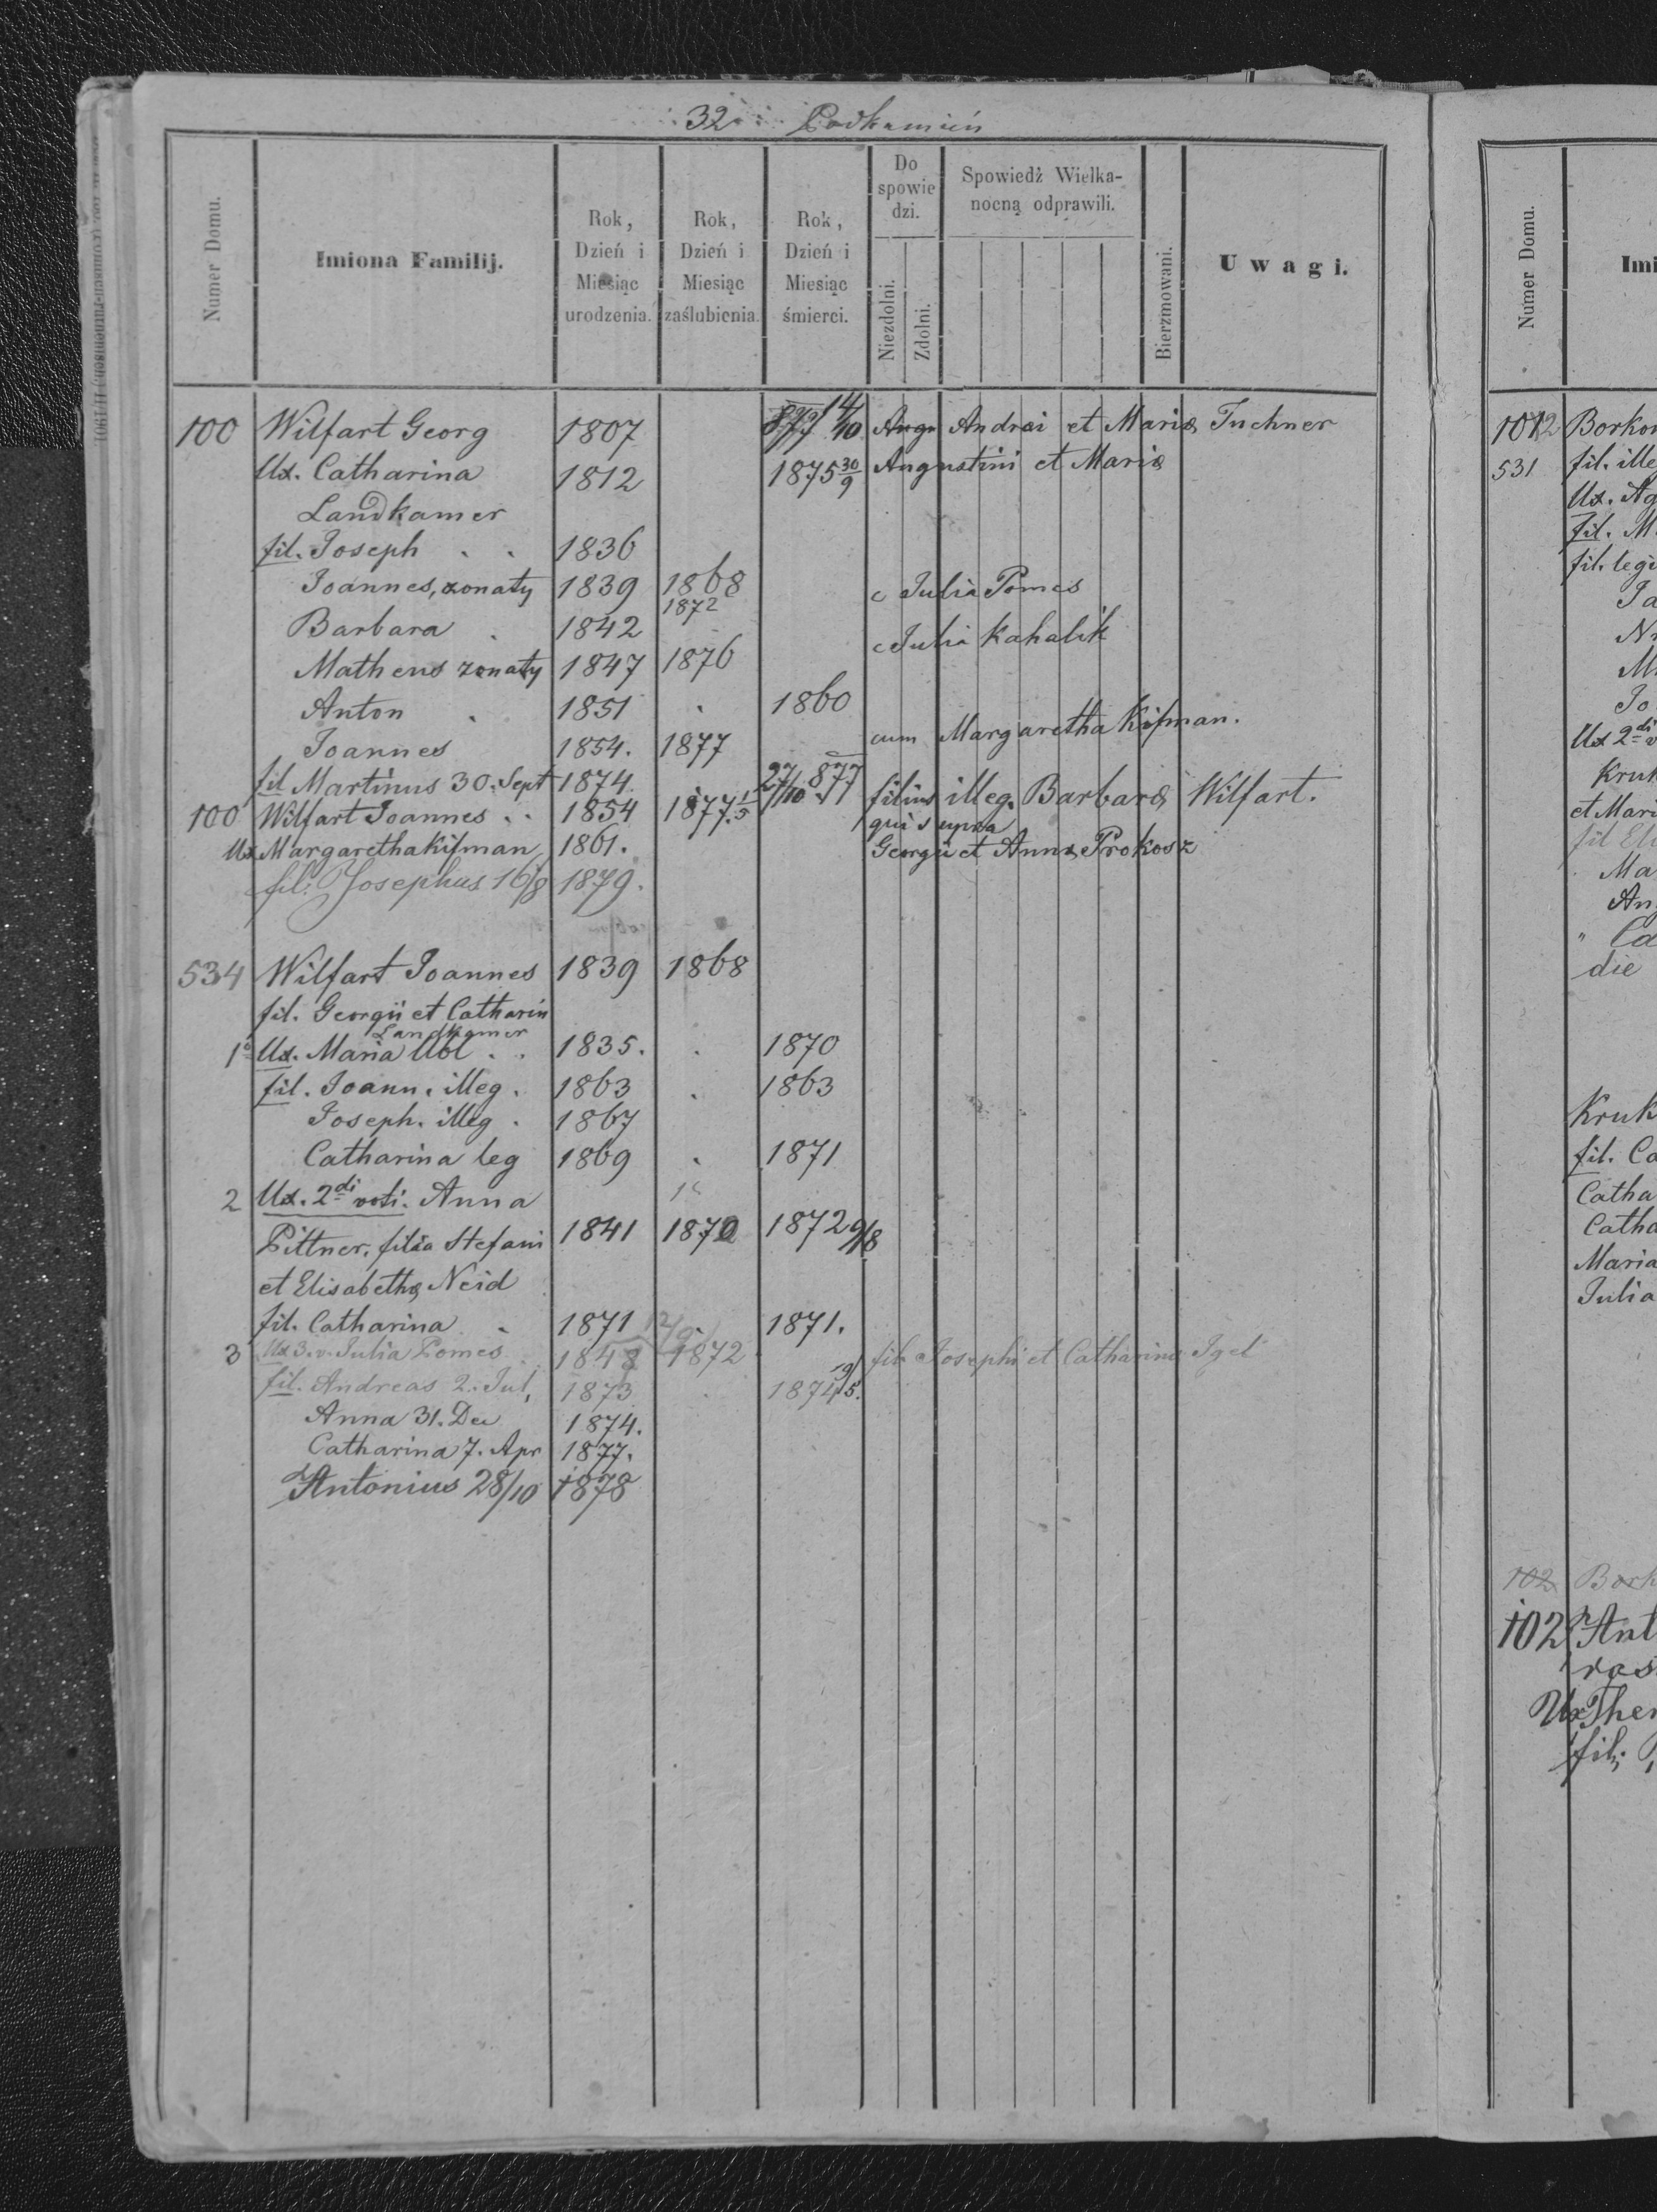 32. Podkamień
Numer Domu.
Imiona Familij.
Rok, Dzień i Miesiąc urodzenia.
Rok, Dzień i Miesiąc zaślubienia.
Rok, Dzień i Miesiąc śmierci.
Do spowiedzi.
Niezdolni.
Zdolni.
Spowiedż Wielkanocną odprawili.
Bierzmowani.
Uwagi.
100 Wilfart Georg 1807 877 14/10 Andrei et Mariæ Tuchner
Ux. Catharina 1812 1875 30/9 Augustini et Mariæ
Landkamer
fil. Joseph . . 1836
Joannes, zonaty 1839 1868 c Julia Pomes
1872
Barbara . 1842
Matheus zonaty 1847 1876 c Julia Kahalik
Anton . 1851 . 1860
Joannes 1854. 1877 cum Margaretha Kifman.
fil Martinus 30. Sept 1874. 27/10 877 filius illeg. Barbaræ Wilfart.
100 Wilfart Joannes . . 1854 1877 1/5 qui supra
Ux Margaretha Kifman 1861. Georgii et Annæ Prokosz
fil: Josephus 16/8 1879.
534 Wilfart Joannes 1839 1868
fil. Georgii et Catharin
Landkamer
1º Ux. Maria Ubl . . 1835. . 1870
fil. Joann. illeg. 1863 . 1863
Joseph. illeg . 1867
Catharina leg 1869 . 1871
2 Ux. 2di voti. Anna
Pittner, filia Stefani 1841 1870 1872 9/8
et Elisabethæ Neid
fil. Catharina . 1871 . 1871.
3 Ux 3. v. Julia Pomes 1848 1872 fil. Josephi et Catharina Igel
fil. Andreas 2. Jul, 1873 . 1874 19/5.
Anna 31. Dec 1874.
Catharina 7. Apr 1877.
Antonius 28/10 1878
Numer Domu.
Imi
1012 Borkow
531 fil. ille
Ux. Ag
Fil. M
fil. legi
Ja
M
Jo
Ux 2di v
Kruk
et Mari
fil El
Ma
An
" Ca
die
Kruk
fil. Ca
Catha
Catha
Maria
Julia
102 Bork
102 Ant
ras
Ux Ther
fil: